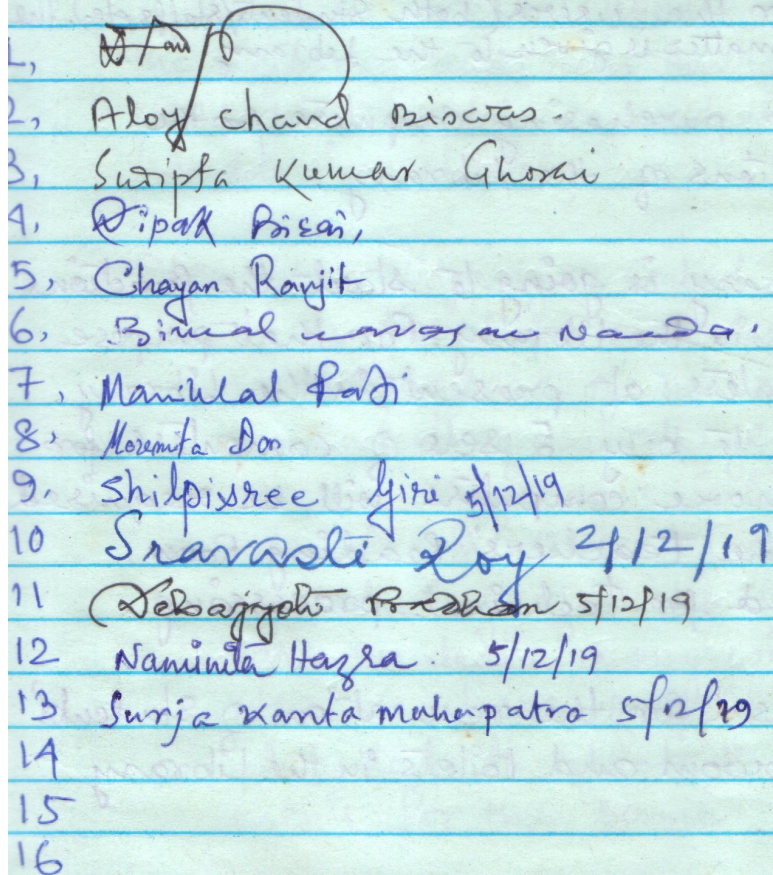 1,
2, Aloy chand Biswas.
3, Sudipta Kumar Ghorai
4, Dipak Bisai,
5, Chayan Ranjit
6, Bimal narayan Nanda.
7, Maniklal
8, Moremita Don
9. Shilpisree Giri 5/12/19
10 Sravasti Roy 2/12/19
11 Debajyoti Pradhan 5/12/19
12 Namimita Hazra. 5/12/19
13 Surja Kanta mahapatra 5/12/19
14
15
16